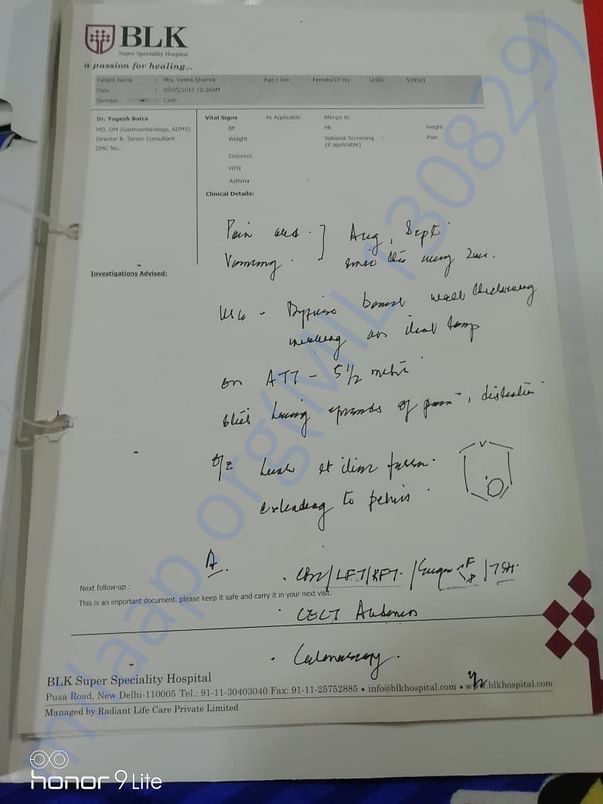 BLK
Super Speciality Hospital
a passion for healing...
Patient Name : Mrs. Veena Sharma Age / Sex : Female/37 Yrs UHID :
Date : 05/05/2017 10:20AM
Sponsor : Cash
Dr. Yogesh Batra
MD, DM (Gastroenterology, AIIMS)
Director & Senior Consultant
DMC No.:
Vital Signs As Applicable Allergic to :
BP PR Height
Weight National Screening Pain
(if applicable)
Diabetes
HTN
Asthma
Clinical Details:
Pain abd. Aug, Sept
Vomiting. since
Investigations Advised:
USG - bowel wall thickening
involving
on ATT - 5½
still having episodes of pain, distention
O/E at iliac fossa
extending to pelvis.
A.
CBC/LFT/KFT / TSH
Next follow-up :
This is an important document, please keep it safe and carry it in your next visit.
CECT Abdomen
Colonoscopy.
BLK Super Speciality Hospital
Pusa Road, New Delhi-110005 Tel.: 91-11-30403040 Fax: 91-11-25752885 • info@blkhospital.com • www.blkhospital.com
Managed by Radiant Life Care Private Limited
milaap.org(MIL1308829)
honor 9 Lite